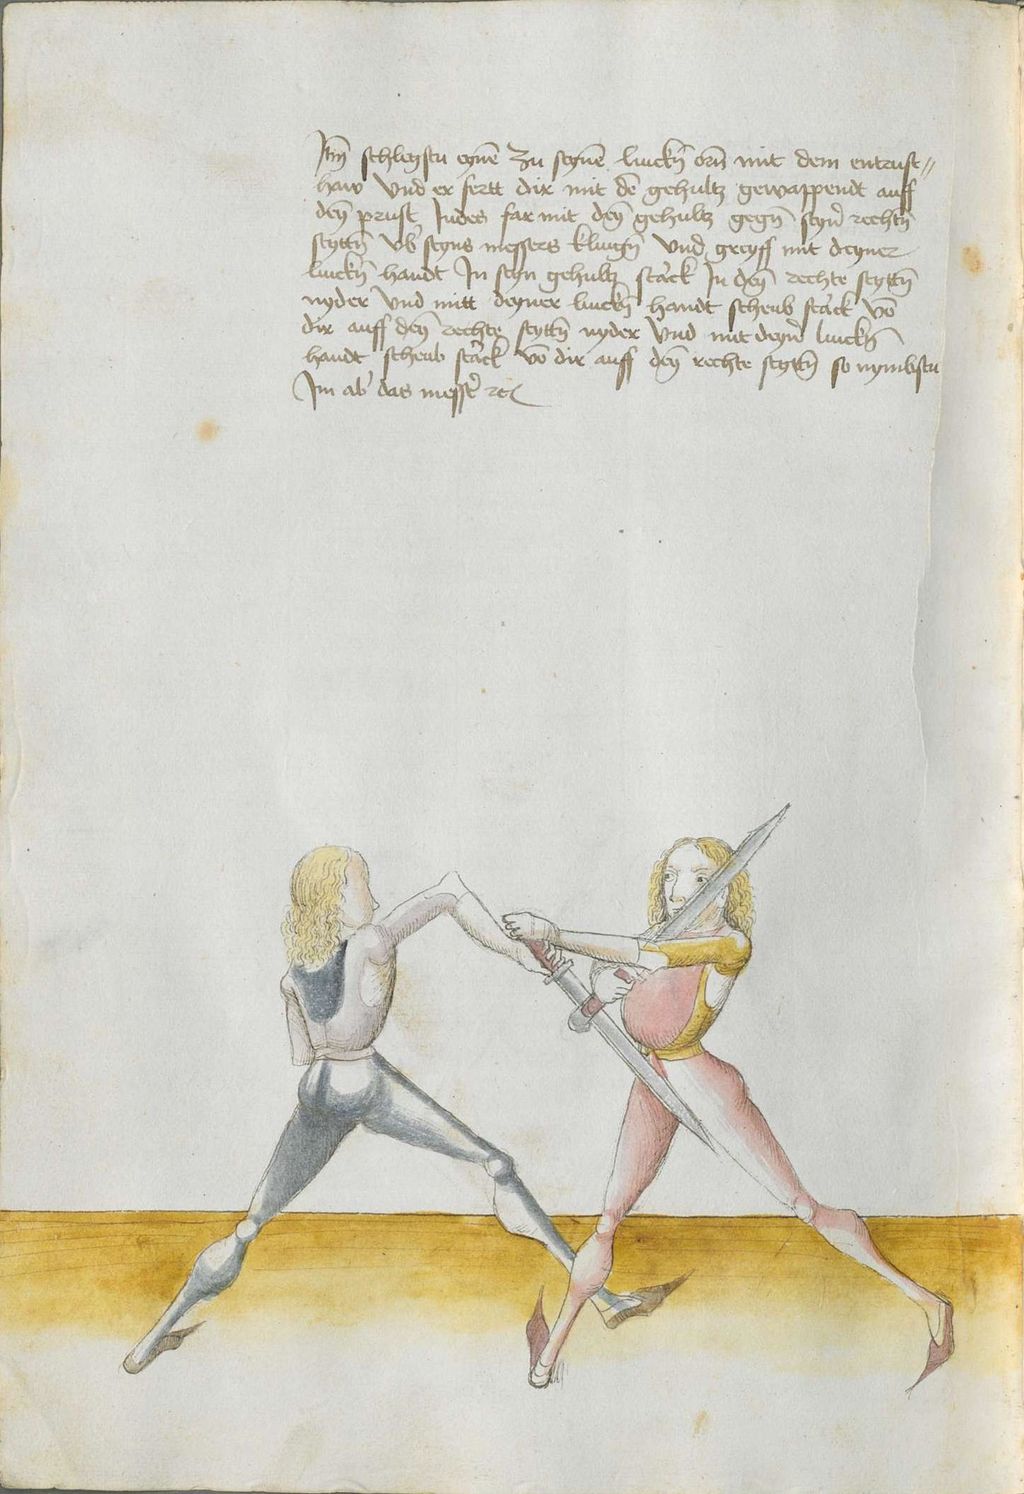 Itm̄ schlechstu eynē zu seynē linckn̄ orn̄ mit dem entrust=
haw Vnd er fertt dir mit dē gehultz gewappendt auff
den̄ prust Indes far mit den̄ gehultz gegn̄ seyn̄ rechtn̄
seyttn̄ vb̄ seyns messers klingn̄ Vnd greyff mit deyner
linckn̄ handt In seyn gehultz starck In den̄ rechte seyttn̄
nyder Vnd mitt deyner linckn̄ handt scheub starck vō
dir auff den̄ rechte seyttn̄ nyder Vnd mit deyn̄ linckn̄
handt scheub starck vō dir auff den̄ rechte seyttn̄ so nymbstu
Im ab das messr̄ rc